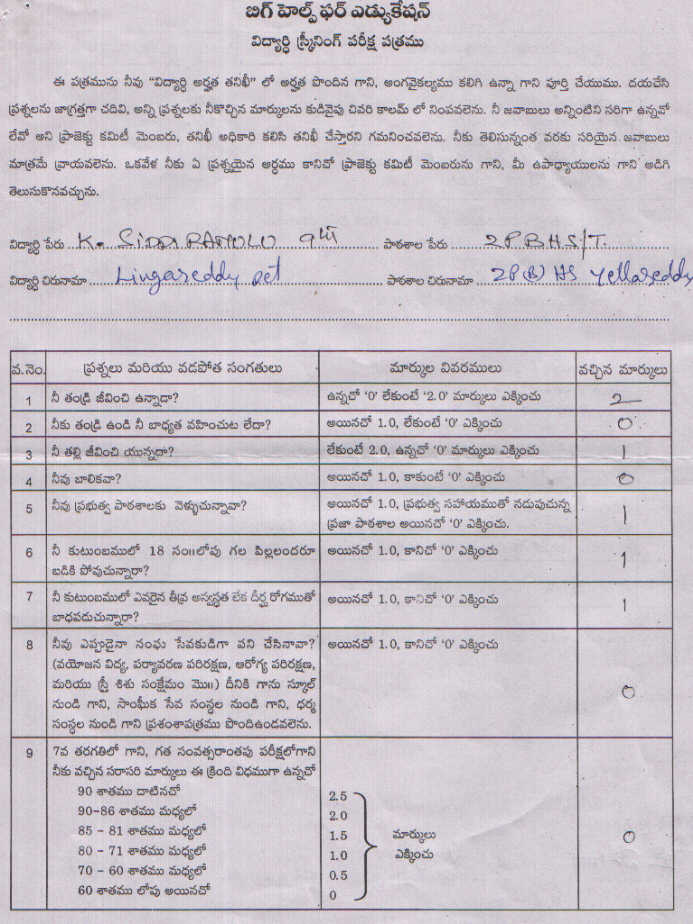 బిగ్ హెల్ప్ ఫర్ ఎడ్యుకేషన్
విద్యార్థి స్క్రీనింగ్ పరీక్ష పత్రము
ఈ పత్రమును నీవు "విద్యార్థి అర్హత తనిఖీ" లో అర్హత పొందిన గాని, అంగవైకల్యము కలిగి ఉన్నా గాని పూర్తి చేయుము. దయచేసి
ప్రశ్నలను జాగ్రత్తగా చదివి, అన్ని ప్రశ్నలకు నీకొచ్చిన మార్కులను కుడివైపు చివరి కాలమ్ లో నింపవలెను. నీ జవాబులు అన్నింటిని సరిగా ఉన్నవో
లేవో అని ప్రాజెక్టు కమిటీ మెంబరు, తనిఖీ అధికారి కలిసి తనిఖీ చేస్తారని గమనించవలెను. నీకు తెలిసున్నంత వరకు సరియైన జవాబులు
మాత్రమే వ్రాయవలెను. ఒకవేళ నీకు ఏ ప్రశ్నయైన అర్థము కానిచో ప్రాజెక్టు కమిటీ మెంబరును గాని, మీ ఉపాధ్యాయులను గాని అడిగి
తెలుసుకొనవచ్చును.
విద్యార్థి పేరు K. SIDDI RAMULU 9th పాఠశాల పేరు ZPBHS/T.
విద్యార్థి చిరునామా Lingareddy pet పాఠశాల చిరునామా ZP(B)HS Yellareddy
వ.నెం. ప్రశ్నలు మరియు వడపోత సంగతులు మార్కుల వివరములు వచ్చిన మార్కులు
1 నీ తండ్రి జీవించి ఉన్నాడా? ఉన్నచో '0' లేకుంటే '2.0' మార్కులు ఎక్కించు 2
2 నీకు తండ్రి ఉండి నీ బాధ్యత వహించుట లేదా? అయినచో 1.0, లేకుంటే '0' ఎక్కించు 0
3 నీ తల్లి జీవించి యున్నదా? లేకుంటే 2.0, ఉన్నచో '0' మార్కులు ఎక్కించు 1
4 నీవు బాలికవా? అయినచో 1.0, కాకుంటే '0' ఎక్కించు 0
5 నీవు ప్రభుత్వ పాఠశాలకు వెళ్ళుచున్నావా? అయినచో 1.0, ప్రభుత్వ సహాయముతో నడుపుచున్న 1
ప్రజా పాఠశాల అయినచో '0' ఎక్కించు.
6 నీ కుటుంబములో 18 సం॥లోపు గల పిల్లలందరూ అయినచో 1.0, కానిచో '0' ఎక్కించు 1
బడికి పోవుచున్నారా?
7 నీ కుటుంబములో ఎవరైన తీవ్ర అస్వస్థత లేక దీర్ఘ రోగముతో అయినచో 1.0, కానిచో '0' ఎక్కించు 1
బాధపడుచున్నారా?
8 నీవు ఎప్పుడైనా సంఘ సేవకుడిగా పని చేసినావా? అయినచో 1.0, కానిచో '0' ఎక్కించు 0
(వయోజన విద్య, పర్యావరణ పరిరక్షణ, ఆరోగ్య పరిరక్షణ,
మరియు స్త్రీ శిశు సంక్షేమం మొ॥) దీనికి గాను స్కూల్
నుండి గాని, సాంఘీక సేవ సంస్థల నుండి గాని, ధర్మ
సంస్థల నుండి గాని ప్రశంశాపత్రము పొందిఉండవలెను.
9 7వ తరగతిలో గాని, గత సంవత్సరాంతపు పరీక్షలోగాని
నీకు వచ్చిన సరాసరి మార్కులు ఈ క్రింది విధముగా ఉన్నచో
90 శాతము దాటినచో 2.5
90-86 శాతము మధ్యలో 2.0
85 - 81 శాతము మధ్యలో 1.5 మార్కులు 0
80 - 71 శాతము మధ్యలో 1.0 ఎక్కించు
70 - 60 శాతము మధ్యలో 0.5
60 శాతము లోపు అయినచో 0